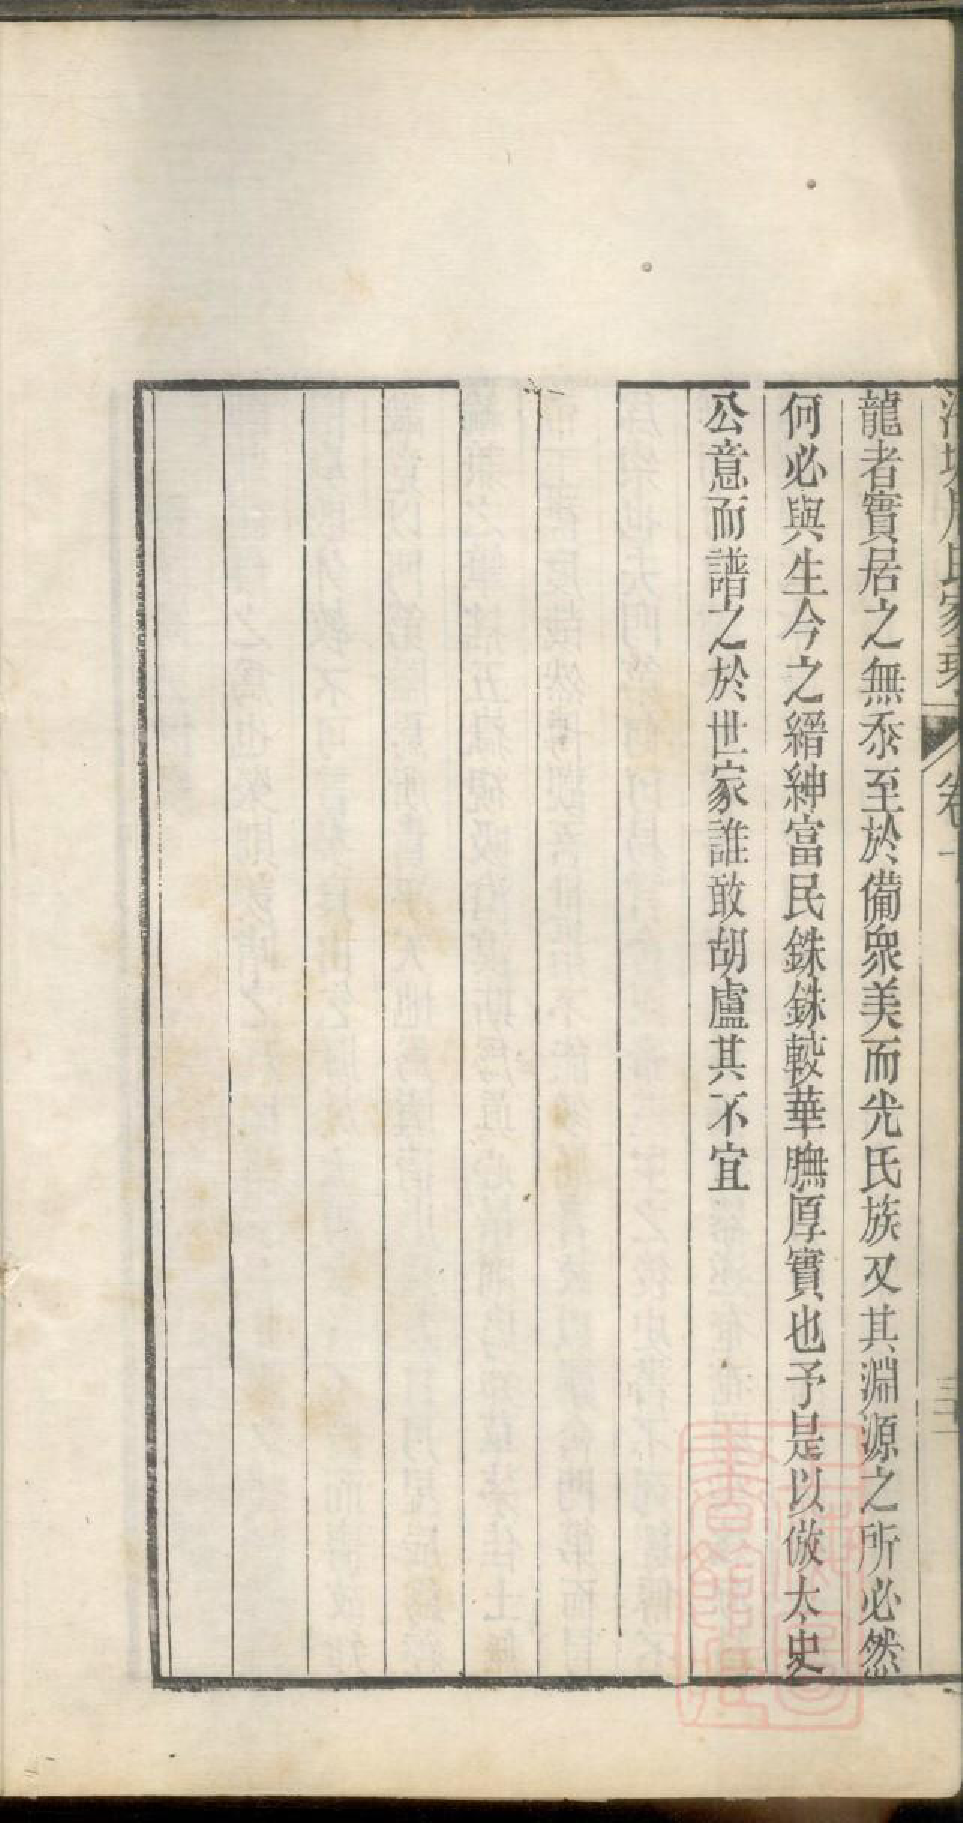 龍者實居之無忝至於備衆美而光氏族又其淵源之所必然
何必與生今之縉紳富民銖銖較華膴厚實也予是以倣太史
公意而譜之於世家誰敢胡盧其不宜